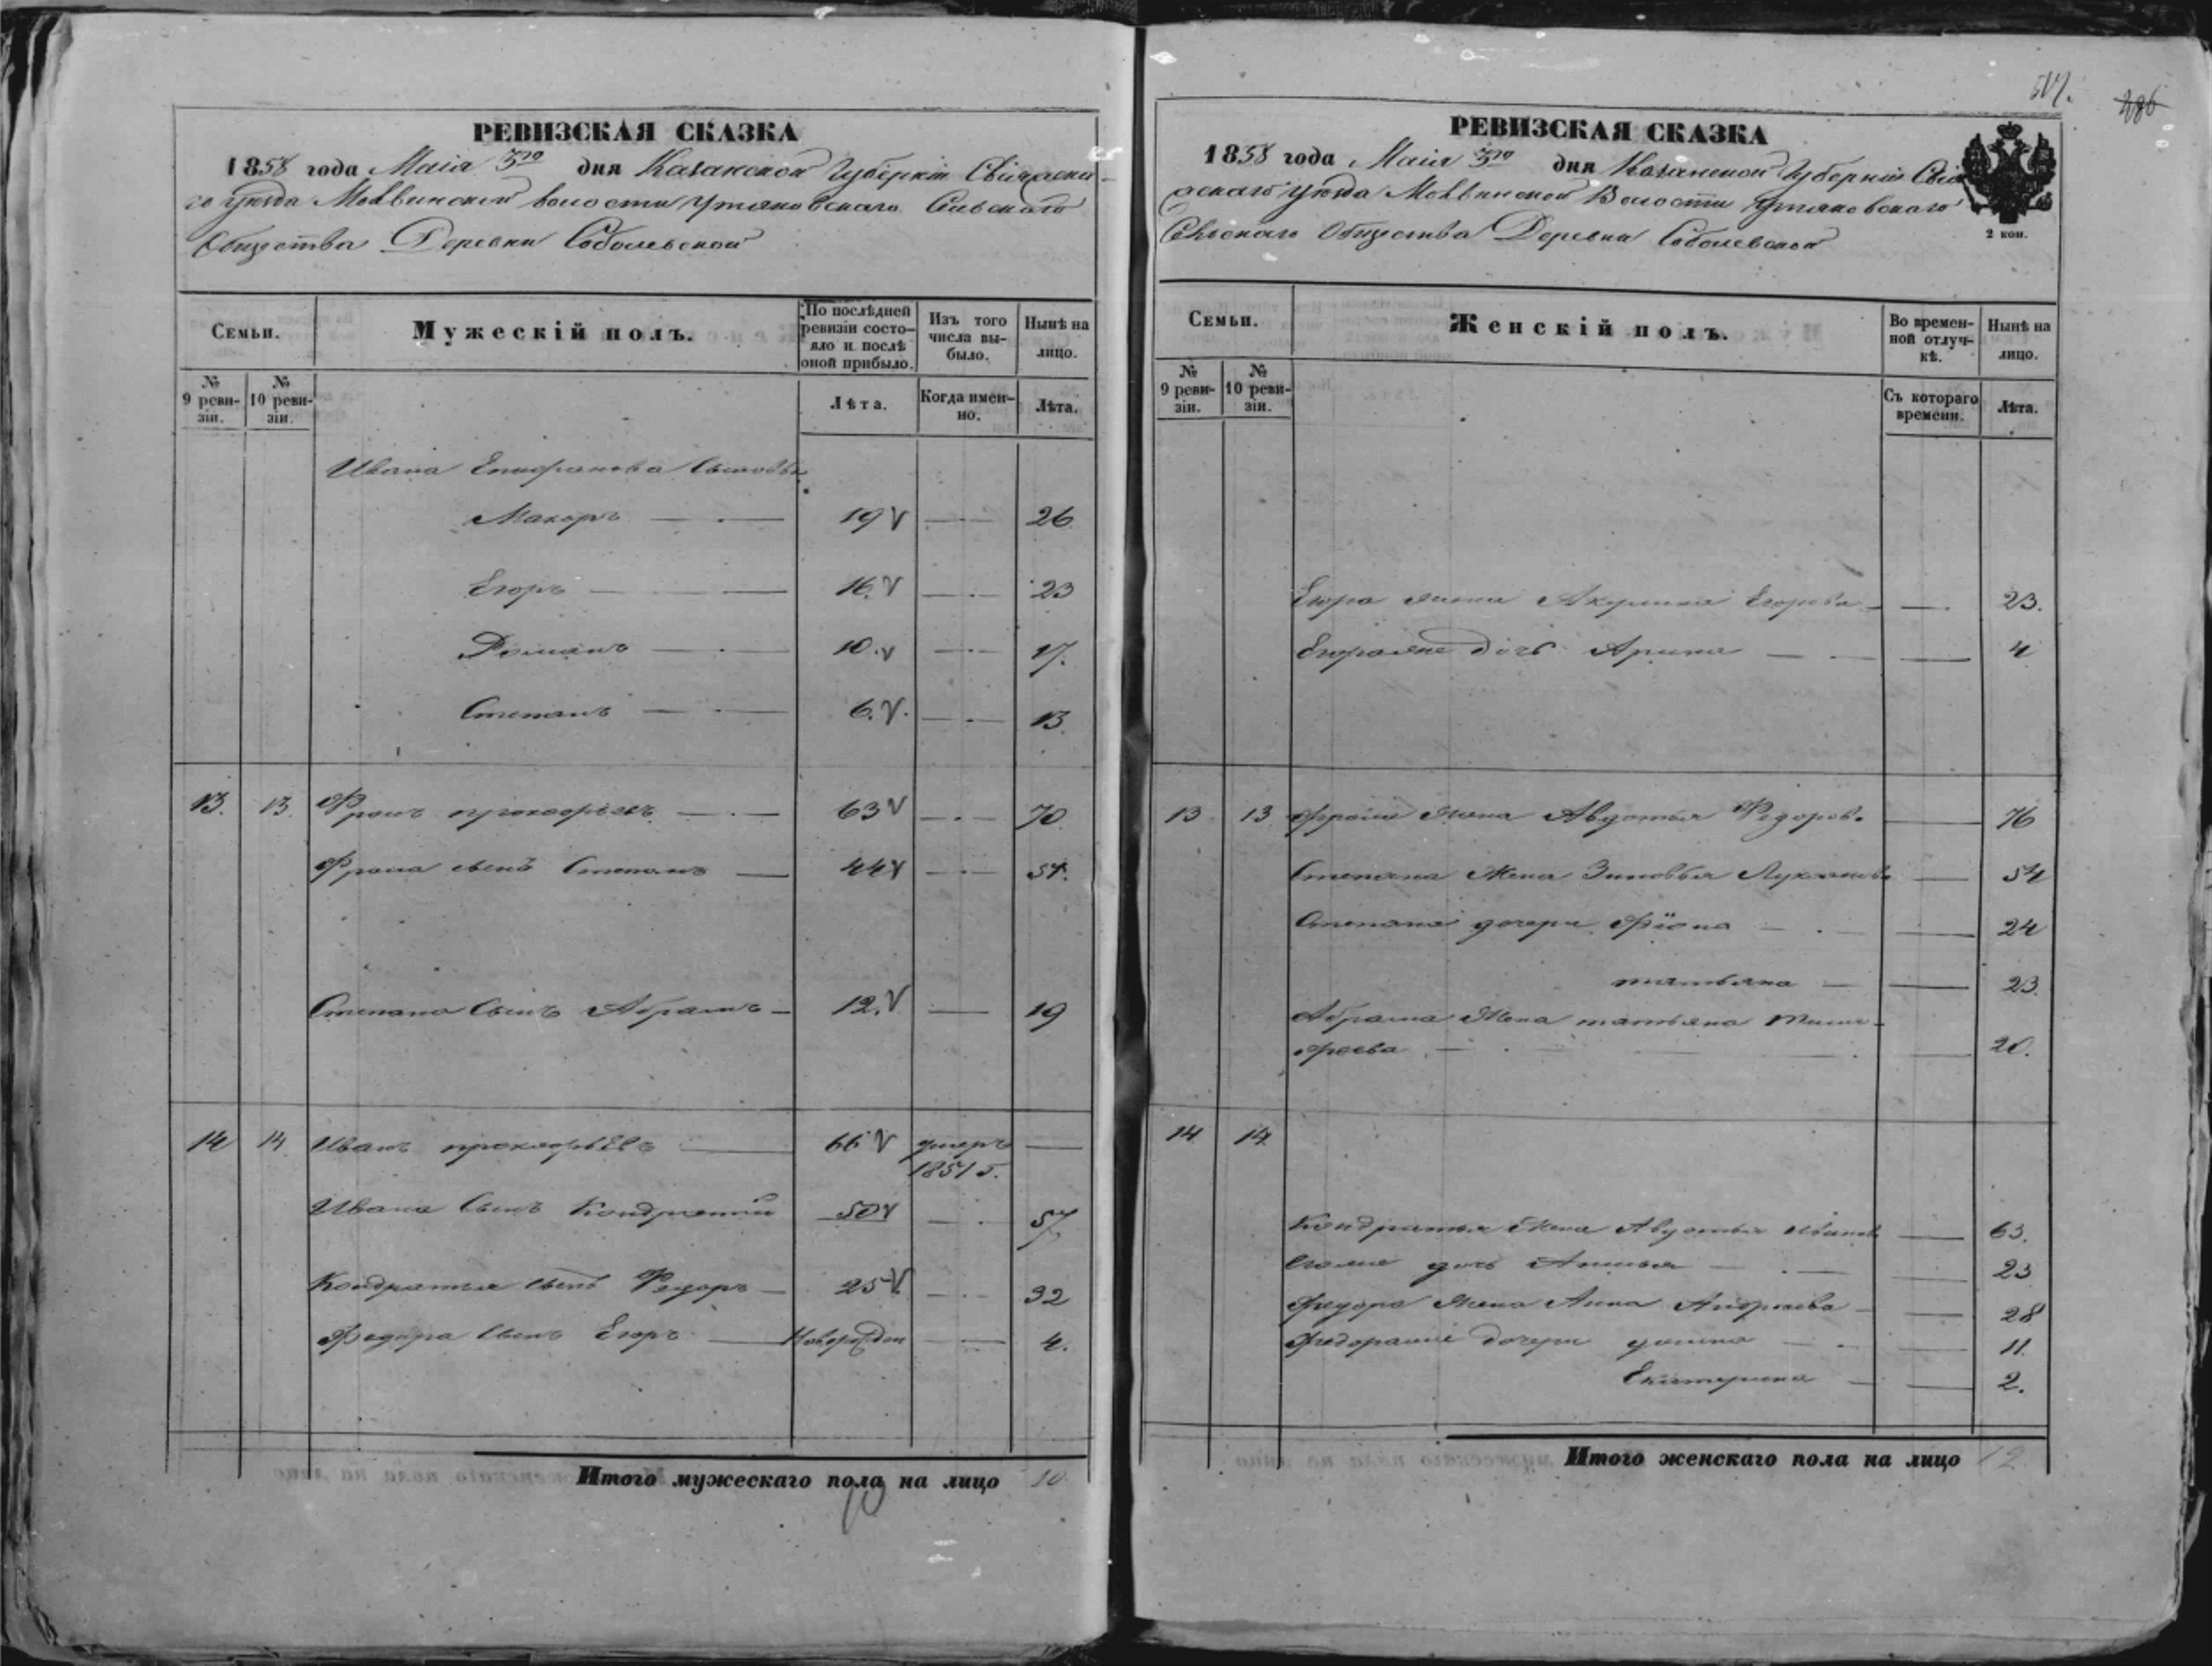 РЕВИЗСКАЯ СКАЗКА
1858 года Маія 3го дня Казанской Губерніи Свіяжска-
го уѣзда Моквинской волости Утяковскаго Сельскаго
Общества Деревни Соболевской
Семьи.
Мужескій полъ.
По послѣдней ревизіи состояло и послѣ оной прибыло.
Изъ того числа выбыло.
Нынѣ на лицо.
№ 9 ревизіи.
№ 10 ревизіи.
Лѣта.
Когда именно.
Лѣта.
Ивана Епифанова Сыновья
Макаръ 19 26
Егоръ 16. 23
Романъ 10. 17.
Степанъ 6. 13.
13. 13. Фролъ прокофьевъ 63 70
Фрола сынъ Степанъ 44 51.
Степана Сынъ Абрамъ 12. 19
14 14 Иванъ прокофьевъ 66 умеръ —
1851 г.
Ивана Сынъ Кондратій 50 57
Кондратья сынъ Федоръ 25 32
Федора сынъ Егоръ Новорожден 4.
Итого мужескаго пола на лицо 10
10
517.
286
РЕВИЗСКАЯ СКАЗКА
1858 года Маія 3го дня Казанской Губерніи Свія-
жскаго уѣзда Моквинской Волости Утяковскаго
Сельскаго Общества Деревни Соболевской
2 коп.
Семьи.
Женскій полъ.
Во временной отлучкѣ.
Нынѣ на лицо.
№ 9 ревизіи.
№ 10 ревизіи.
Съ котораго времени.
Лѣта.
Егора жена Акулина Егорова 23.
Егора же дочь Арина 4
13 13 Фрола Жена Авдотья Федоров. 76
Степана Жена Зиновья Лукянова 54
Степана дочери Фіона 24
татьяна 23.
Абрама Жена татьяна Тимо-
феева 20.
14 14.
Кондратья Жена Авдотья Иванов 63.
дочь 23
Федора Жена Анна Андреева 28
Федора дочери 11.
Екатерина 2.
Итого женскаго пола на лицо 12